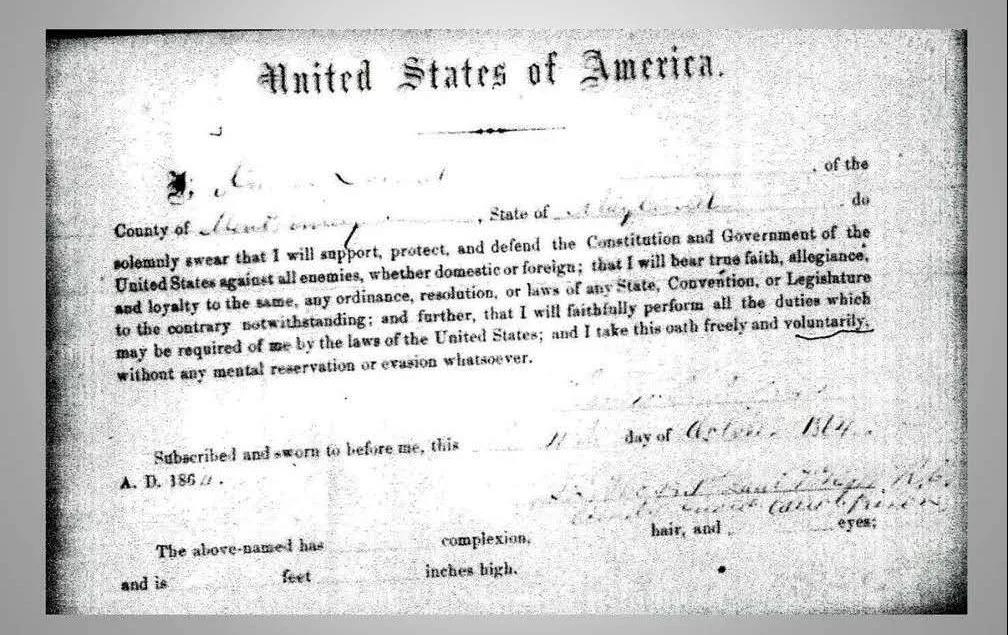 United States of America.
I, of the
County of Montgomery, State of Maryland do
solemnly swear that I will support, protect, and defend the Constitution and Government of the
United States against all enemies, whether domestic or foreign; that I will bear true faith, allegiance,
and loyalty to the same, any ordinance, resolution, or laws of any State, Convention, or Legislature
to the contrary notwithstanding; and further, that I will faithfully perform all the duties which
may be required of me by the laws of the United States; and I take this oath freely and voluntarily,
without any mental reservation or evasion whatsoever.
Subscribed and sworn to before me, this day of 1864.
A. D. 186
The above-named has complexion, hair, and eyes;
and is feet inches high.